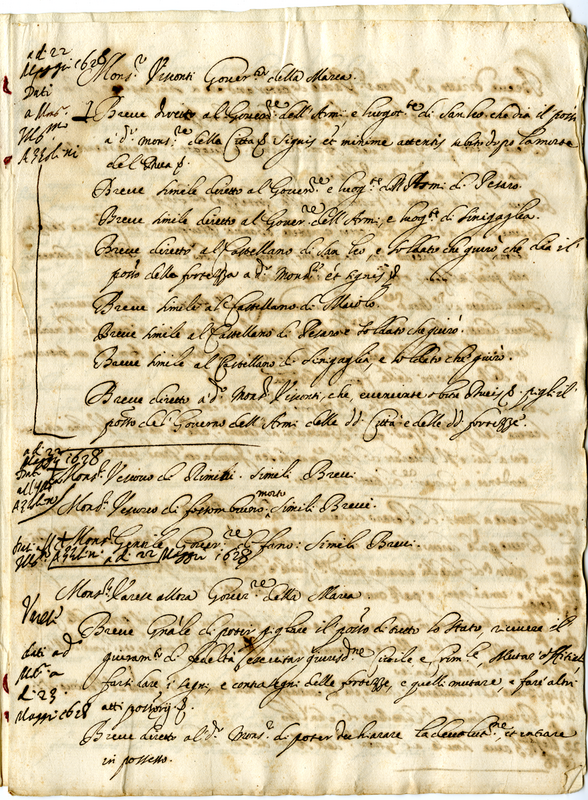 ad 22
Maggio 1628
Dati
a Mons.r
Ill.mo
Azzolini
Mons.r Visconti Gover.re della Marca.
Breve diretto al Gover.re dell'Armi e luogot.te di San leo che dia il posto
a d.o mons.re della Città et minime attentis subito dopo la morte
del
Breve simile diretto al Gover.re e luog.te dell'Armi di Pesaro.
Breve simile diretto al Gover.re dell'Armi, e luog.te di Sinigaglia.
Breve diretto al Castellano di San leo, e soldato che giurò, che dia il
posto della fortezza a d.o Mons.r et
Breve simile al Castellano di Maiolo.
Breve simile al Castellano di Pesaro e soldato che giurò.
Breve simile al Castellano di Sinigaglia, e soldato che giurò.
Breve diretto a d.o Mons.r Visconti, che, eveniente pigli il
posto del Governo dell'Armi delle dd. Città e delle dd. fortezze.
ad 22
Maggio 1628
Dati
Azzolini
Mons.r Vescovo di Rimini. Simili Brevi
morto
Mons.r Vescovo di fossombruno. Simili Brevi.
Dati
Azzolini ad 22 Maggio 1628
Mons.r Gentile Gover.re di fano: Simili Brevi.
Mons.r Varese allora Gover.re della Marca.
Varese
dati ad
a
di 23
Maggio 1628
Breve gn'ale di poter pigliare il posto di tutto lo stato, ricevere il
giuram.to di fedeltà, essercitar giurisd.ne Civile e Crim.le, Mutar offitiali
farsi dare i segni, e contrasegni delle fortezze, e quelli mutare, e fare altri
atti
Breve diretto al d.o Mons.r di poter dichiarare la devolut.ne, et entrare
in possesso.